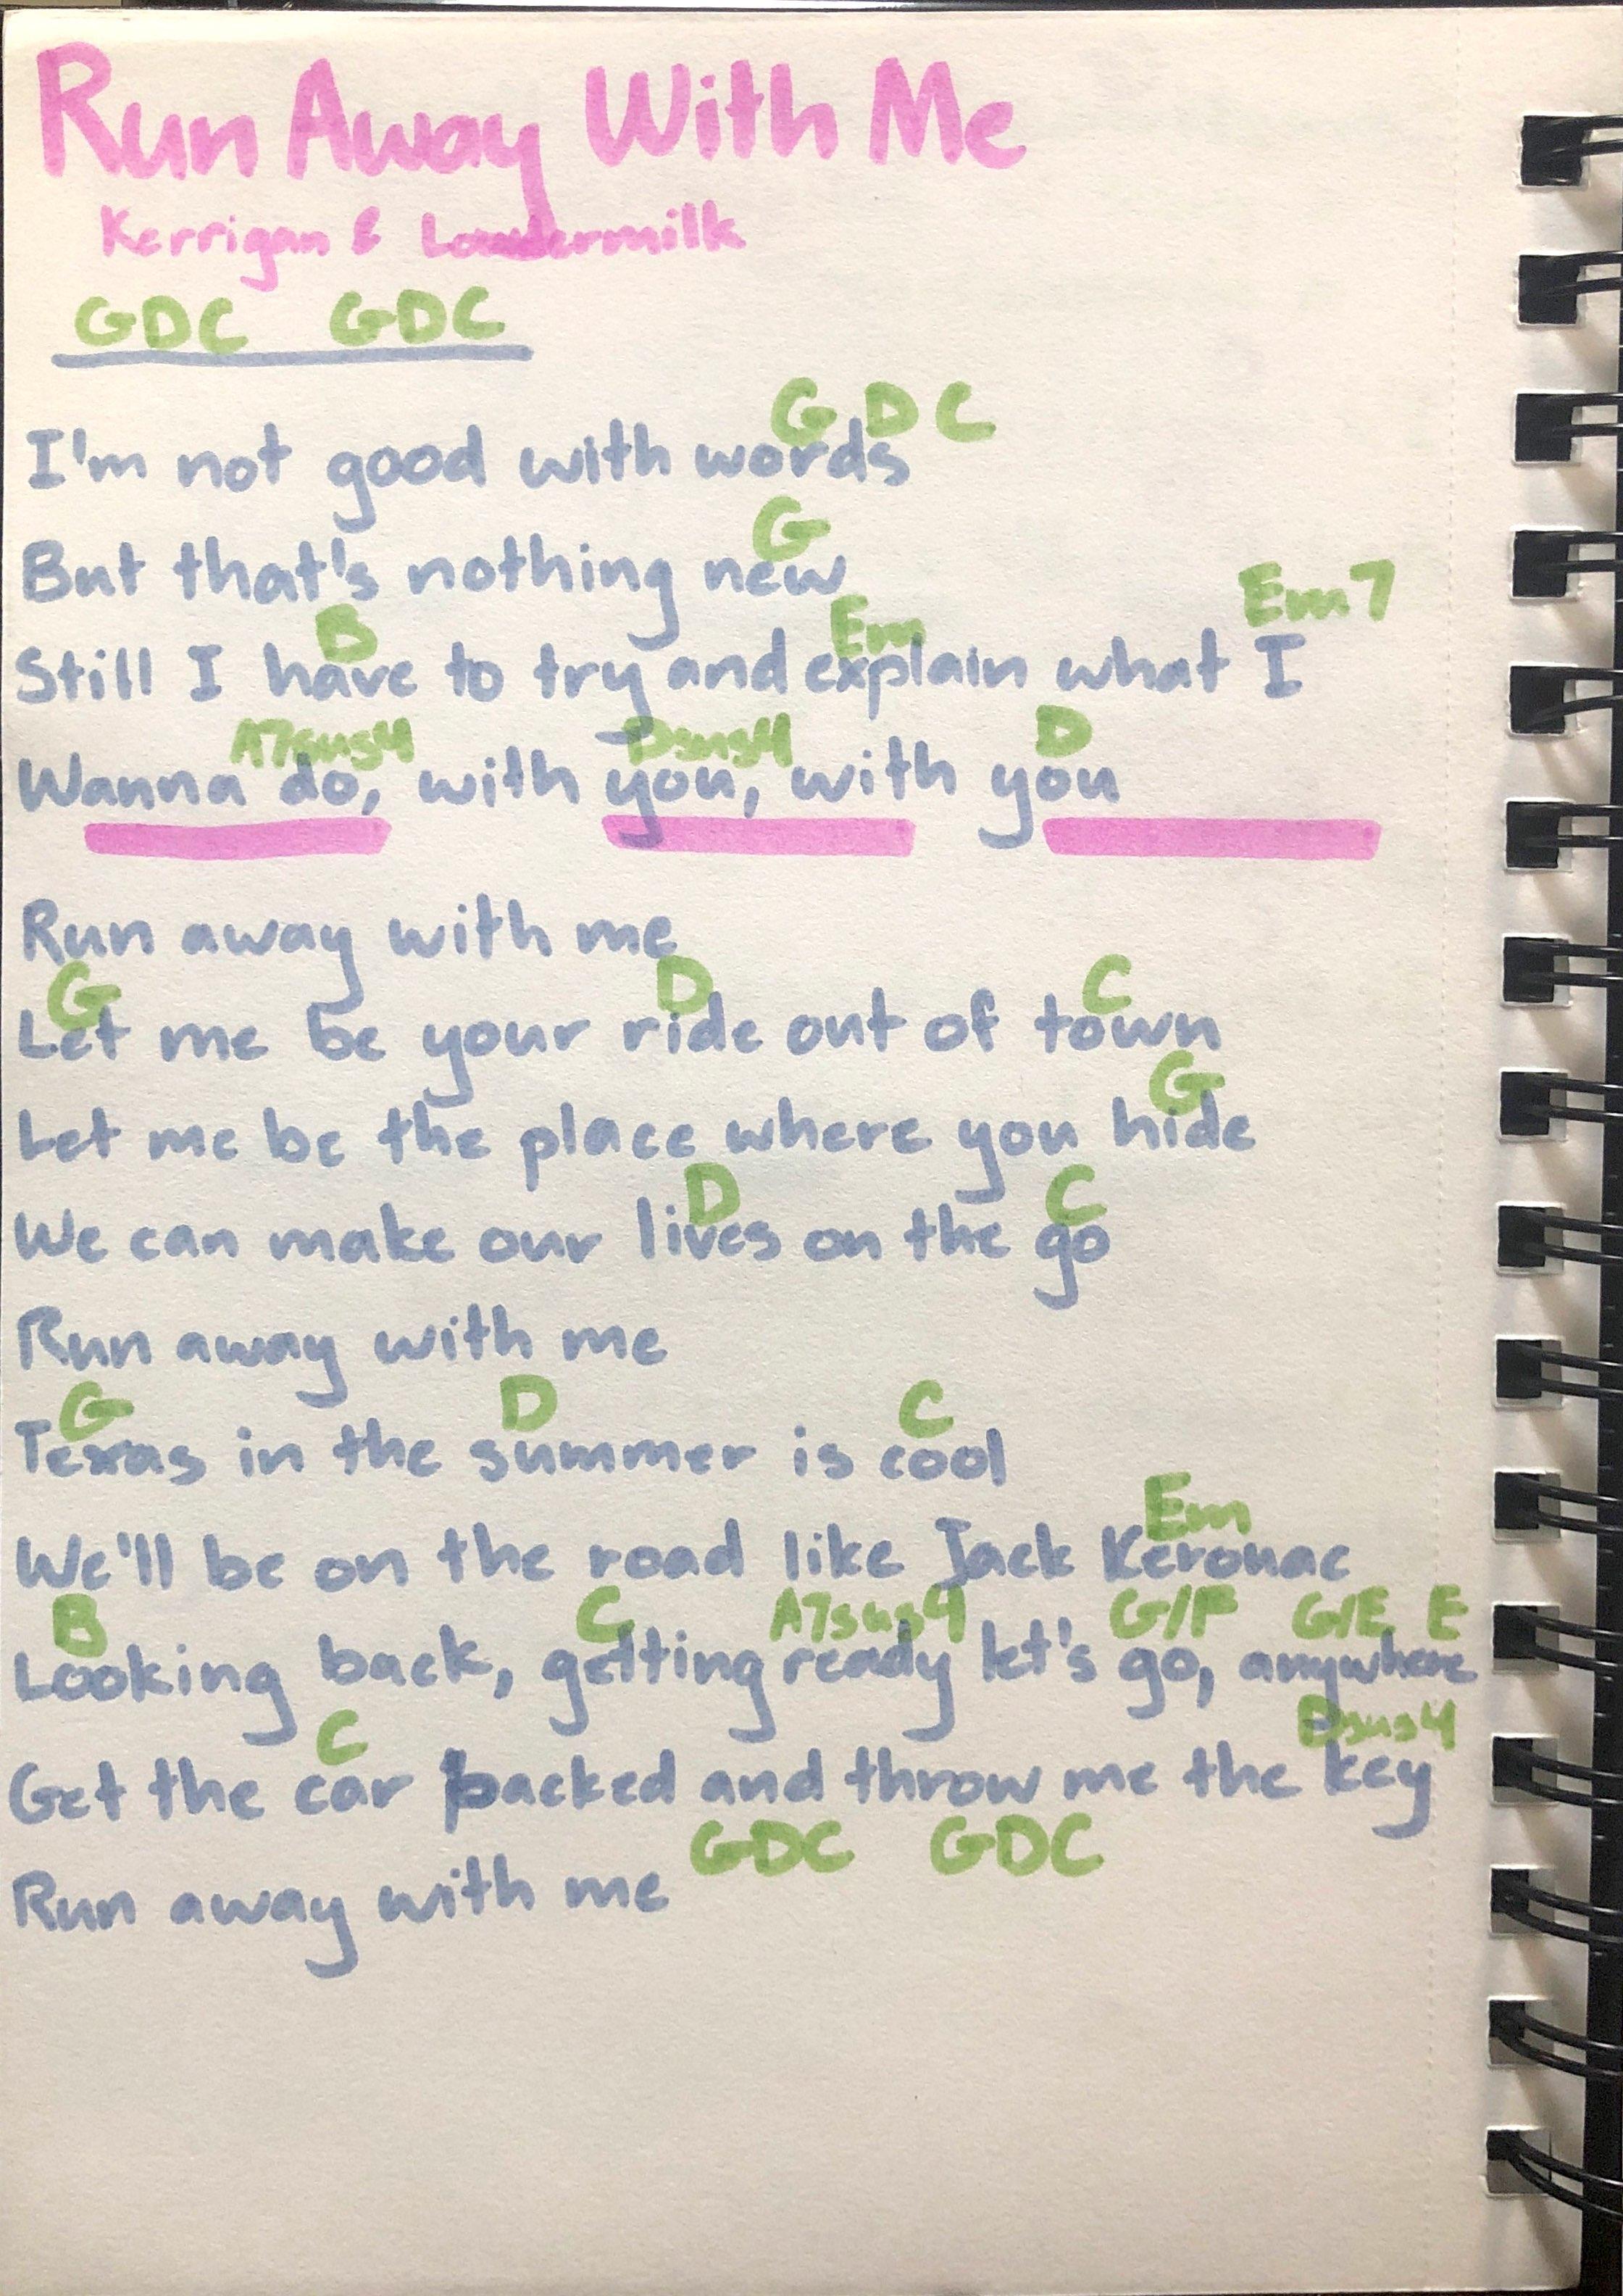 Run Away With Me
Kerrigan & Lowdermilk
GDC GDC
G D C
I'm not good with words
G
But that's nothing new
B Em Em7
Still I have to try and explain what I
A7sus4 Dsus4 D
Wanna do, with you, with you
Run away with me
G D C
Let me be your ride out of town
G
Let me be the place where you hide
D C
We can make our lives on the go
Run away with me
G D C
Texas in the summer is cool
Em
We'll be on the road like Jack Kerouac
B C A7sus4 G/F G/E E
Looking back, getting ready let's go, anywhere
C Dsus4
Get the car packed and throw me the key
GDC GDC
Run away with me